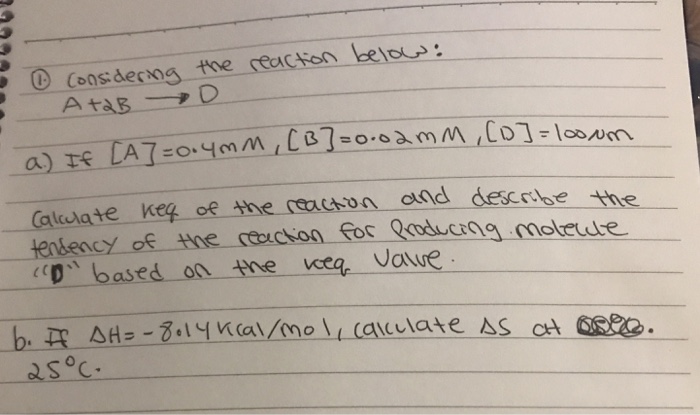 ① Considering the reaction below:
A+2B → D
a.) If [A]=0.4mM, [B]=0.02mM, [D]=100μm
Calculate Keq of the reaction and describe the
tendency of the reaction for Producing molecule
"D" based on the keq value.
b. If ΔH=-8.14Kcal/mol, calculate ΔS at
25°C.